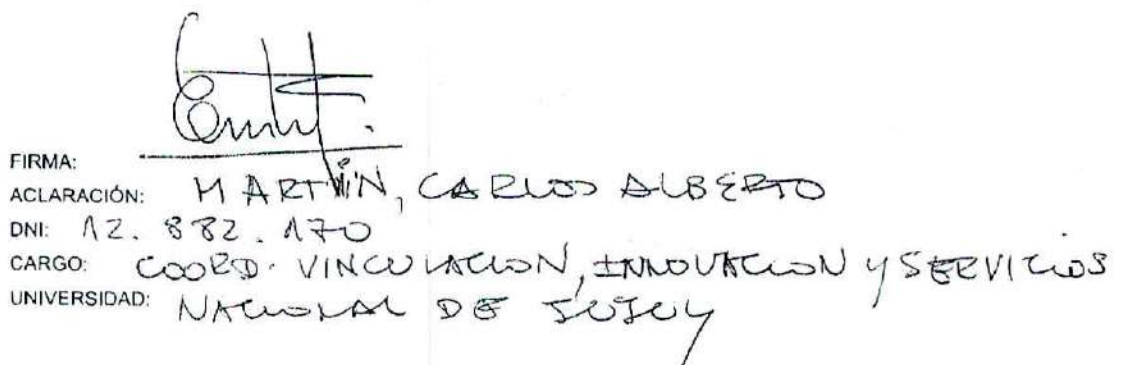 FIRMA:
ACLARACIÓN: MARTÍN, CARLOS ALBERTO
DNI: 12.882.170
CARGO: COORD. VINCULACION, INNOVACION y SERVICIOS
UNIVERSIDAD: NACIONAL DE JUJUY